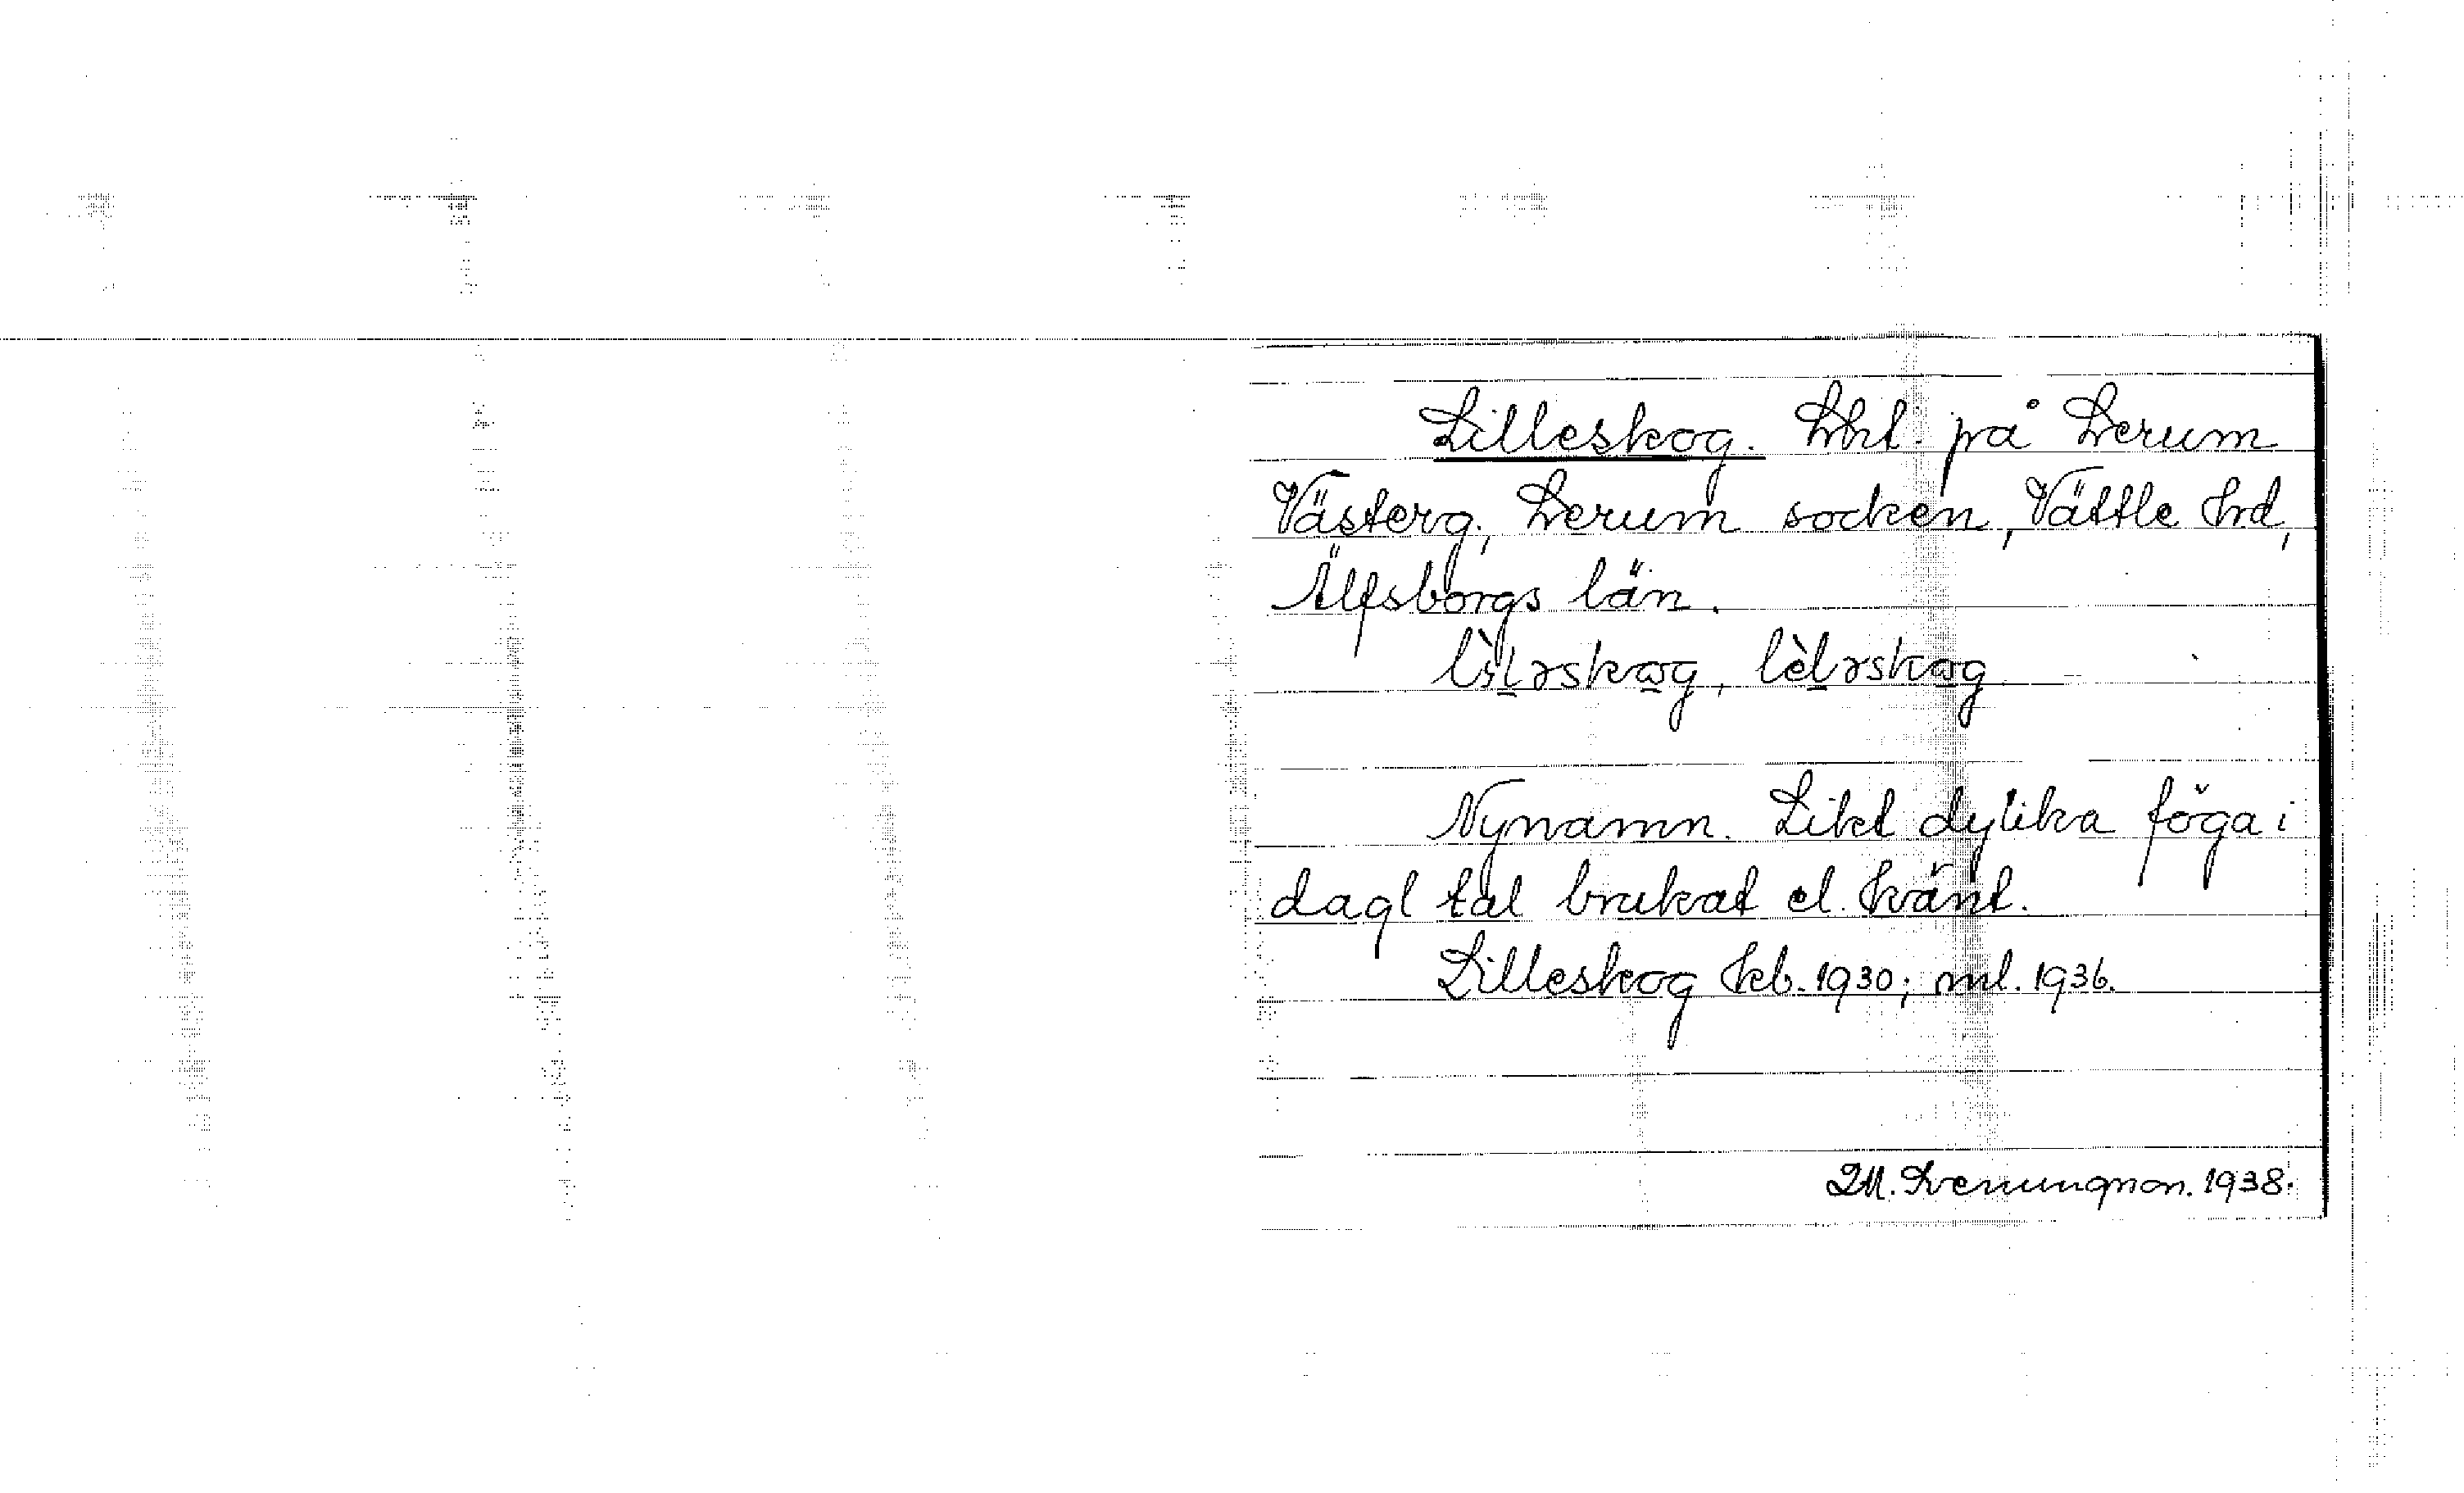 Lilleskog. Lht. på Lerum
Västerg., Lerum socken, Vättle hd,
Älfsborgs län.
lìləskog, lèləskog
Nynamn. Likt dylika föga i
dagl tal brukat el. känt.
Lilleskog kb. 1930; ml. 1936.
1938.